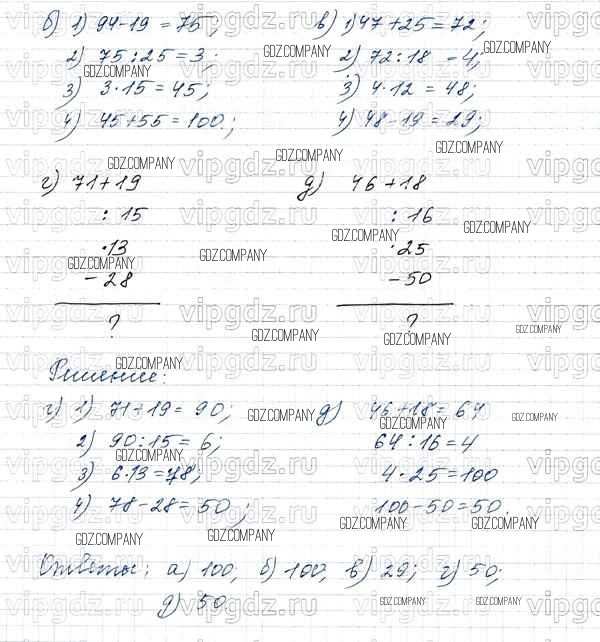 б) 1) 94-19 = 75; в) 1) 47+25 = 72;
2) 75:25 = 3; 2) 72:18 - 4;
3) 3·15 = 45; 3) 4·12 = 48;
4) 45+55 = 100; 4) 48-19 = 29;
г) 71+19 д) 46+18
: 15 : 16
·13 ·25
-28 -50
? ?
Решение:
г) 1) 71+19 = 90; д) 46+18 = 64
2) 90:15 = 6; 64:16 = 4
3) 6·13 = 78; 4·25 = 100
4) 78-28 = 50; 100-50 = 50.
Ответы: а) 100; б) 100; в) 29; г) 50;
д) 50
vipgdz.ru
GDZ.COMPANY